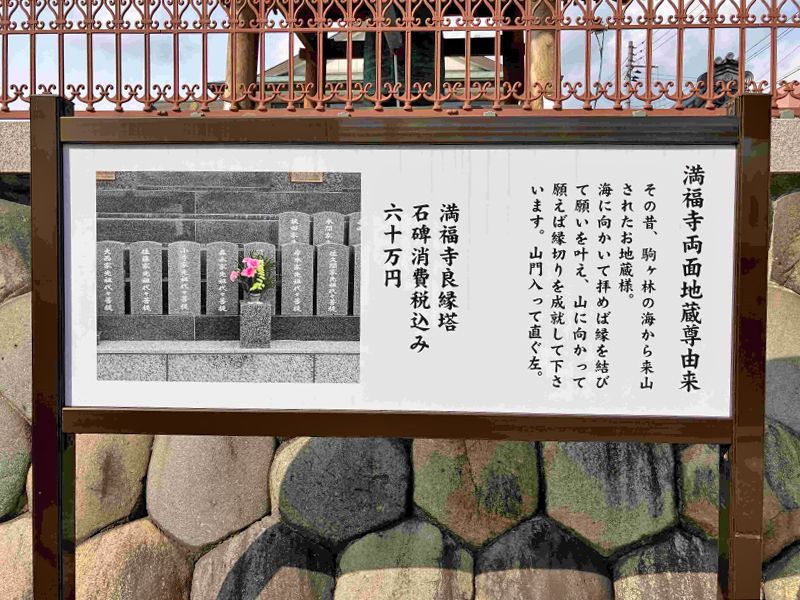 満福寺両面地蔵尊由来
その昔、駒ヶ林の海から来山
されたお地蔵様。
海に向かいて拝めば縁を結び
て願いを叶え、山に向かって
願えば縁切りを成就して下さ
います。山門入って直ぐ左。
満福寺良縁塔
石碑消費税込み
六十万円
大西家先祖代々菩提
佐藤家先祖代々菩提